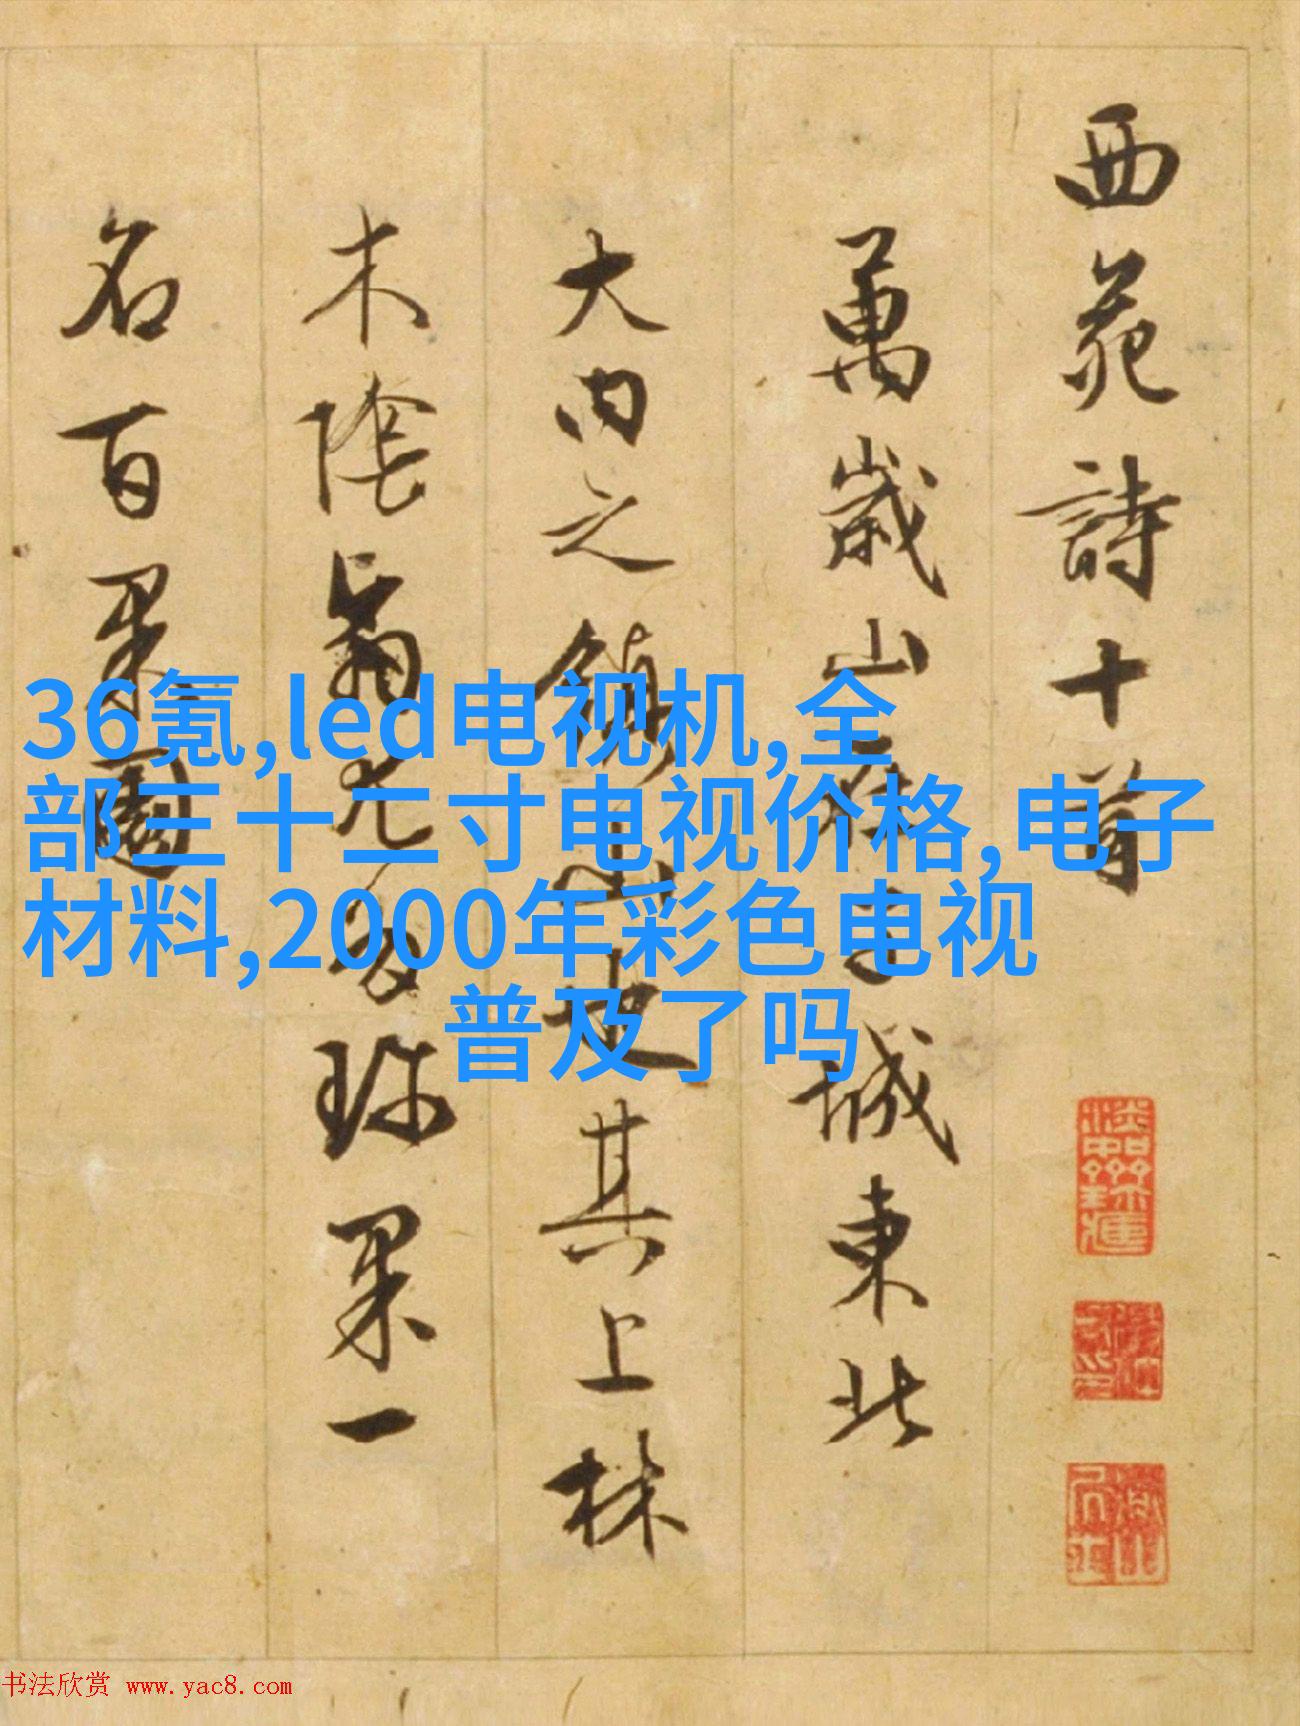 西苑詩十首
萬歲山在子城東北
大内之鎮山也其上林
木陰翳尤多珍果一
名百果園
36氪,led电视机,全
部三十二寸电视价格,电子
材料,2000年彩色电视
普及了吗
书法欣赏 www.yac8.com